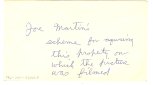 Joe Martin's
scheme for squaring
this property on
which the picture
was filmed